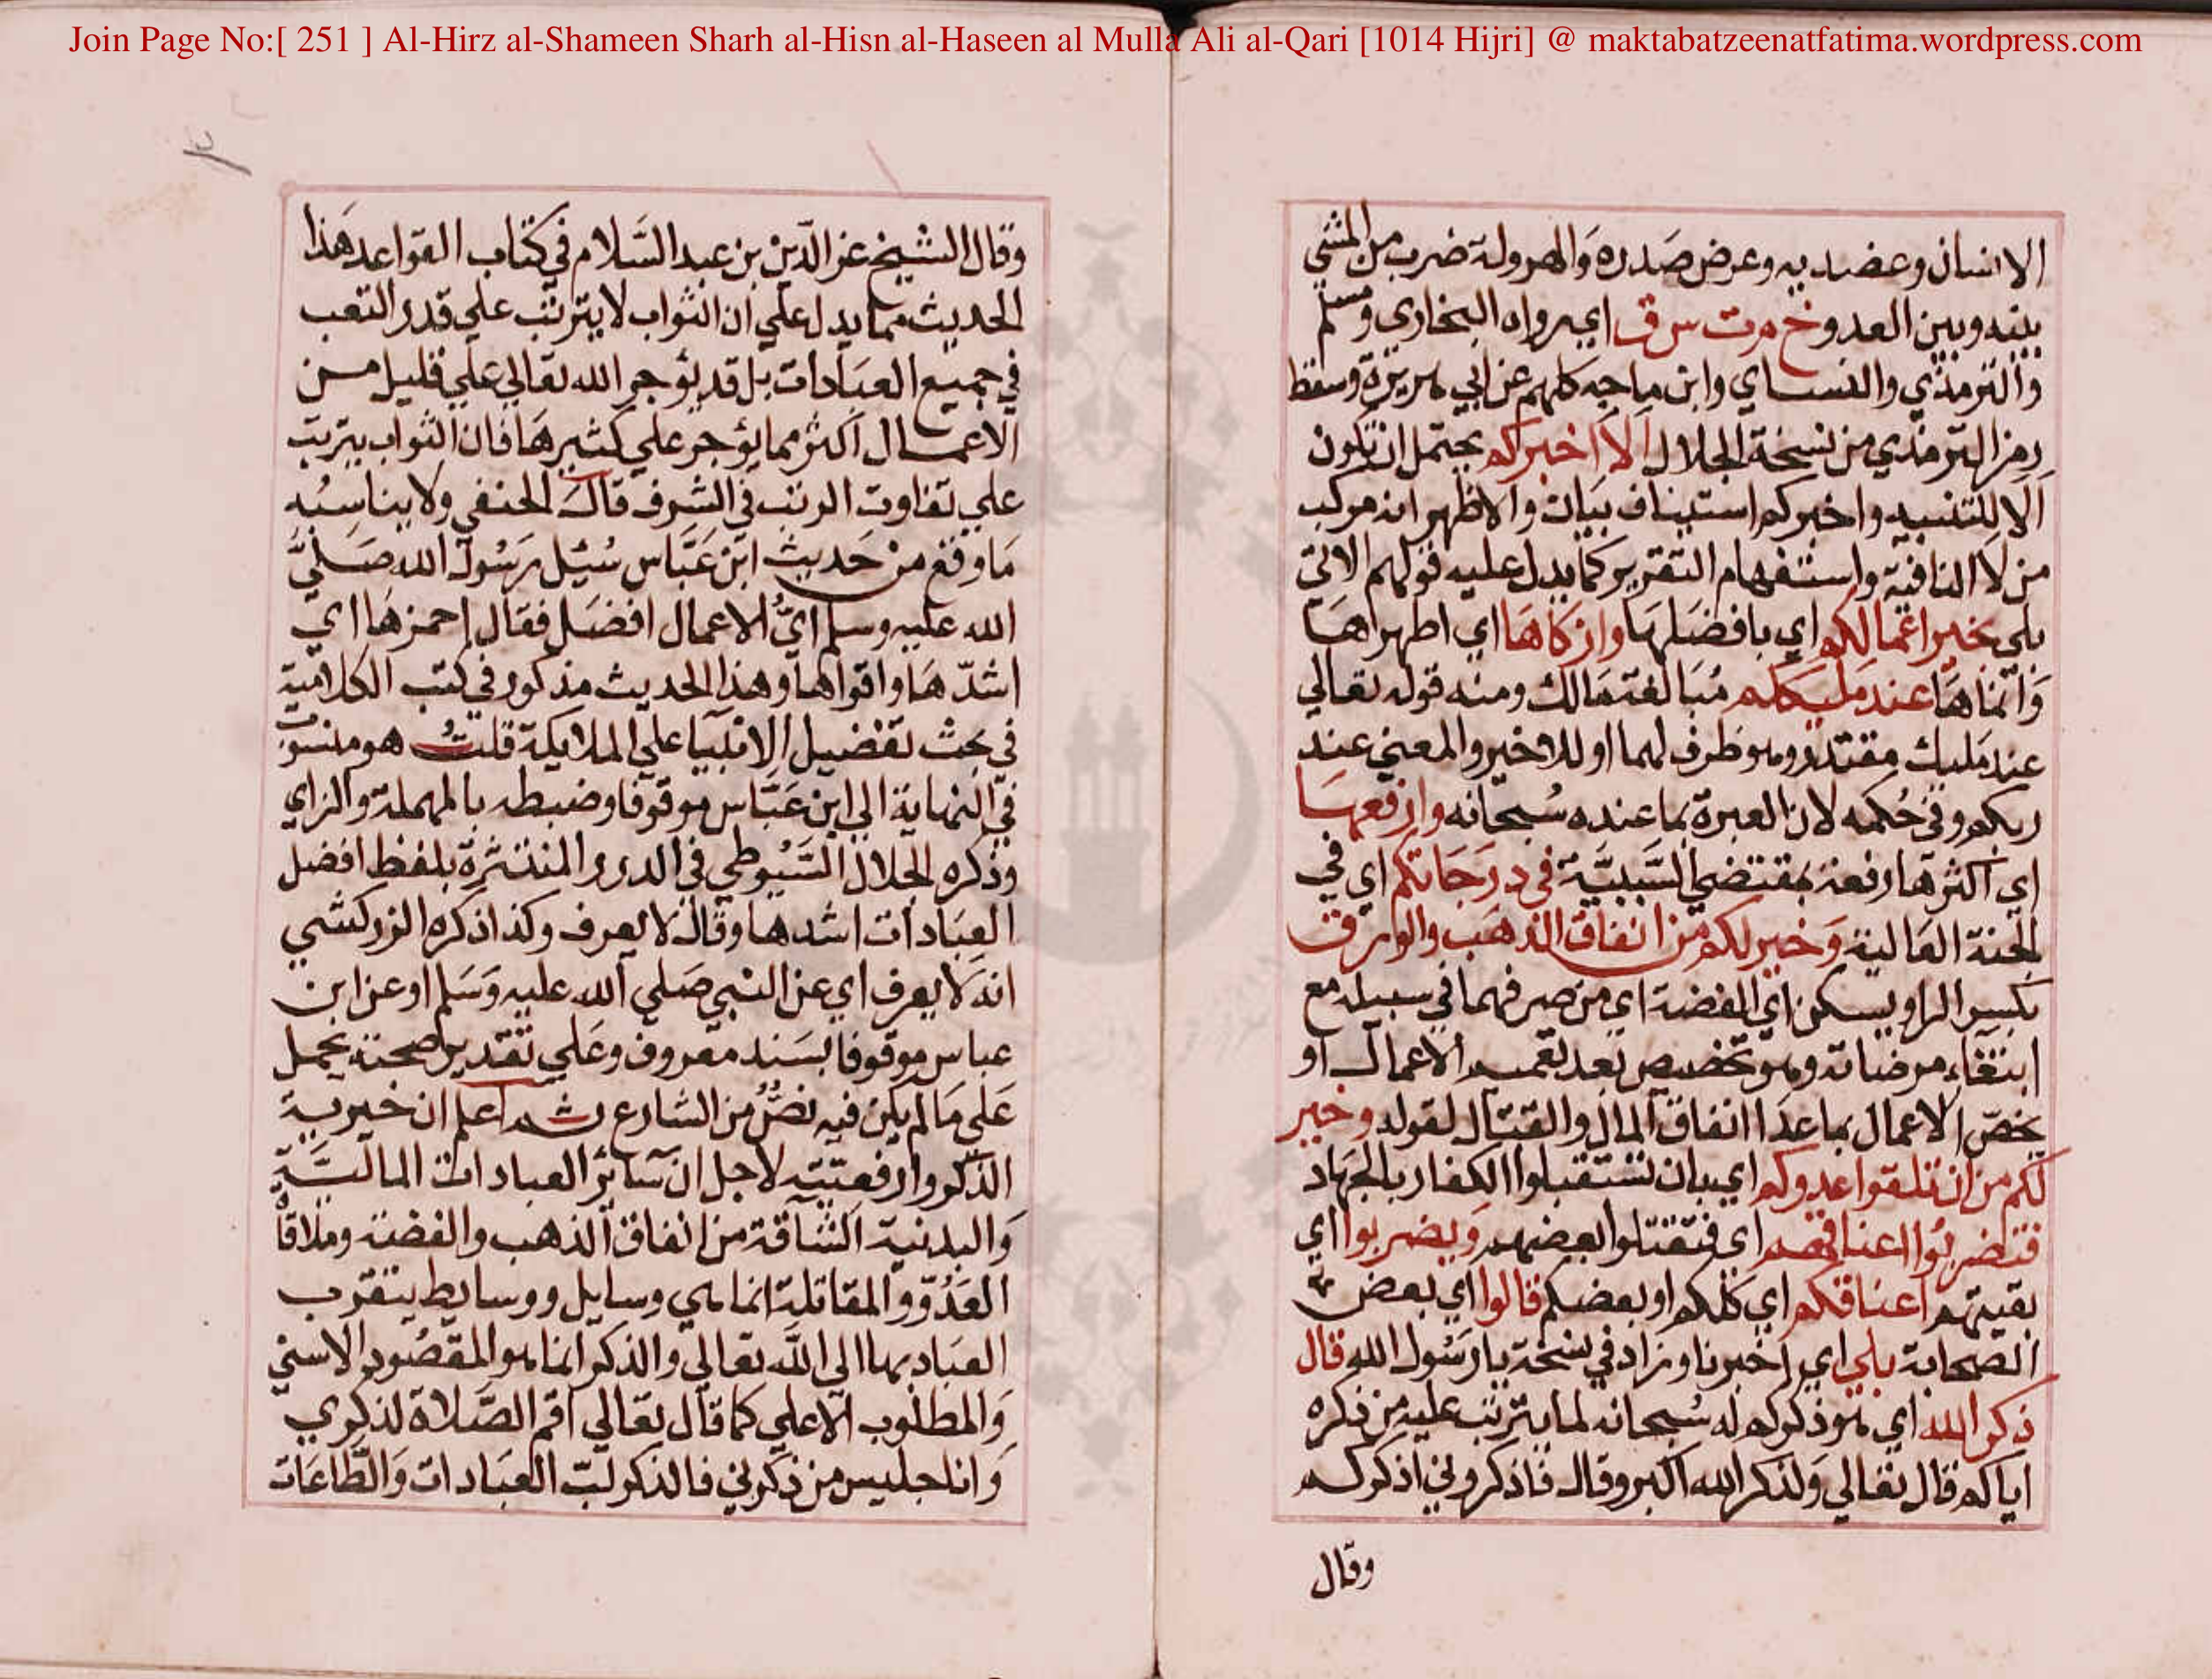 Join Page No:[ 251 ] Al-Hirz al-Shameen Sharh al-Hisn al-Haseen al Mulla Ali al-Qari [1014 Hijri] @ maktabatzeenatfatima.wordpress.com
الانسان وعضديه وعرض صدره والهرولة ضرب من المشي
بينه وبين العدو خ م ت س ق اي رواه البخاري ومسلم
والترمذي والنساي وابن ماجه كلهم عن ابي هريرة وسقط
رمز الترمذي من نسخة الجلال الا اخبركم يحتمل ان تكون
الا للتنبيه واخبركم استيناف بيان والاظهر انه مركب
من لا النافية واستفهام التقرير كما يدل عليه قولهم الاتي
بلي بخير اعمالكم اي بافضلها وازكاها اي اطهراها
وانماها عند مليككم مبالغة مالك ومنه قوله تعالي
عند مليك مقتدر وهو ظرف لهما او للاخير والمعني عند
ربكم وفي حكمه لان العبرة بما عنده سبحانه وارفعها
اي اكثرها رفعة بمقتضي السببية في درجاتكم اي في
الجنة العالية وخير لكم من انفاق الذهب والورق
بكسر الراو يسكن اي الفضة اي من صرفهما في سبيله مع
ابتغاء مرضاته وهو تخصيص بعد تعميم الاعمال او
يخص الاعمال بما عدا انفاق المال والقتال لقوله وخير
لكم من ان تلقوا عدوكم اي بان تستقبلوا الكفار بالجهاد
فتضربوا اعناقهم اي فتقتلوا بعضهم ويضربوا اي
بقيتهم اعناقكم اي كلكم او بعضكم قالوا اي بعض
الصحابة بلي اي اخبرنا وزاد في نسخة يا رسول الله قال
ذكر الله اي هو ذكركم له سبحانه لما يترتب عليه من ذكره
اياكم قال تعالي ولذكر الله اكبر وقال فاذكروني اذكركم
وقال
وقال الشيخ عز الدين بن عبد السلام في كتاب القواعد هذا
الحديث مما يدل علي ان الثواب لا يترتب علي قدر التعب
في جميع العبادات بل قد يؤجر الله تعالي علي قليل من
الاعمال اكثر مما يؤجر علي كثيرها فان الثواب يترتب
علي تفاوت الرتب في الشرف قال الحنفي ولا يناسبه
ما وقع من حديث ابن عباس سئل رسول الله صلي
الله عليه وسلم اي الاعمال افضل فقال احمزها اي
اشدها واقواها وهذا الحديث مذكور في كتب الكلامية
في بحث تفضيل الانبيا علي الملايكة قلت هو منسوب
في النهاية الي ابن عباس موقوفا وضبطه بالمهملة والزاي
وذكره الجلال السيوطي في الدرر المنتثرة بلفظ افضل
العبادات اشدها وقال لا يعرف وكذا ذكره الزركشي
انه لا يعرف اي عن النبي صلي الله عليه وسلم او عن ابن
عباس موقوفا بسند معروف وعلي تقدير صحته يحمل
علي ما لم يكن فيه نص من الشارع ثم اعلم ان خيرية
الذكر وارفعيته لاجل ان سائر العبادات المالية
والبدنية الشاقة من انفاق الذهب والفضة وملاقاة
العدو والمقاتلة انما هي وسايل ووسايط يتقرب
العباد بها الي الله تعالي والذكر انما هو المقصود الاسني
والمطلوب الاعلي كما قال تعالي اقم الصلاة لذكري
وانا جليس من ذكرني فالذكر لب العبادات والطاعات